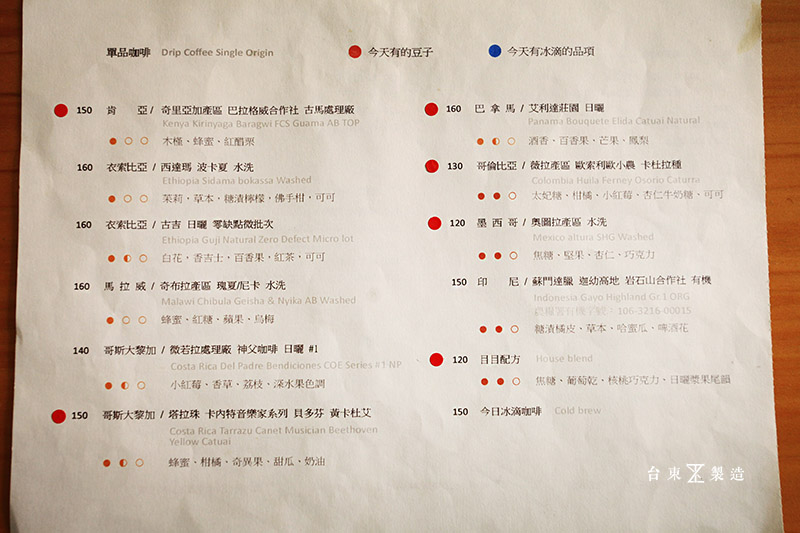 單品咖啡 Drip Coffee Single Origin
今天有的豆子
今天有冰滴的品項
150 肯 亞 / 奇里亞加產區 巴拉格威合作社 古馬處理廠
Kenya Kirinyaga Baragwi FCS Guama AB TOP
木槿、蜂蜜、紅醋栗
160 衣索比亞 / 西達瑪 波卡夏 水洗
Ethiopia Sidama bokassa Washed
茉莉、草本、糖漬檸檬、佛手柑，可可
160 衣索比亞 / 古吉 日曬 零缺點微批次
Ethiopia Guji Natural Zero Defect Micro lot
白花，香吉士，百香果，紅茶，可可
160 馬 拉 威 / 奇布拉產區 瑰夏/尼卡 水洗
Malawi Chibula Geisha & Nyika AB Washed
蜂蜜、紅糖、蘋果、烏梅
140 哥斯大黎加 / 微若拉處理廠 神父咖啡 日曬 #1
Costa Rica Del Padre Bendiciones COE Series #1 NP
小紅莓、香草、荔枝、深水果色調
150 哥斯大黎加 / 塔拉珠 卡內特音樂家系列 貝多芬 黃卡杜艾
Costa Rica Tarrazu Canet Musician Beethoven
Yellow Catuai
蜂蜜、柑橘、奇異果、甜瓜、奶油
160 巴 拿 馬 / 艾利達莊園 日曬
Panama Bouquete Elida Catuai Natural
酒香、百香果、芒果、鳳梨
130 哥倫比亞 / 薇拉產區 歐索利歐小農 卡杜拉種
Colombia Huila Ferney Osorio Caturra
太妃糖、柑橘、小紅莓、杏仁牛奶糖、可可
120 墨 西 哥 / 奧圖拉產區 水洗
Mexico altura SHG Washed
焦糖、堅果、杏仁、巧克力
150 印 尼 / 蘇門達臘 迦幼高地 岩石山合作社 有機
Indonesia Gayo Highland Gr.1 ORG
106-3216-00015
糖漬橘皮、草本、哈蜜瓜、啤酒花
120 目目配方 House blend
焦糖、葡萄乾、核桃巧克力、日曬漿果尾韻
150 今日冰滴咖啡 Cold brew
台東製造